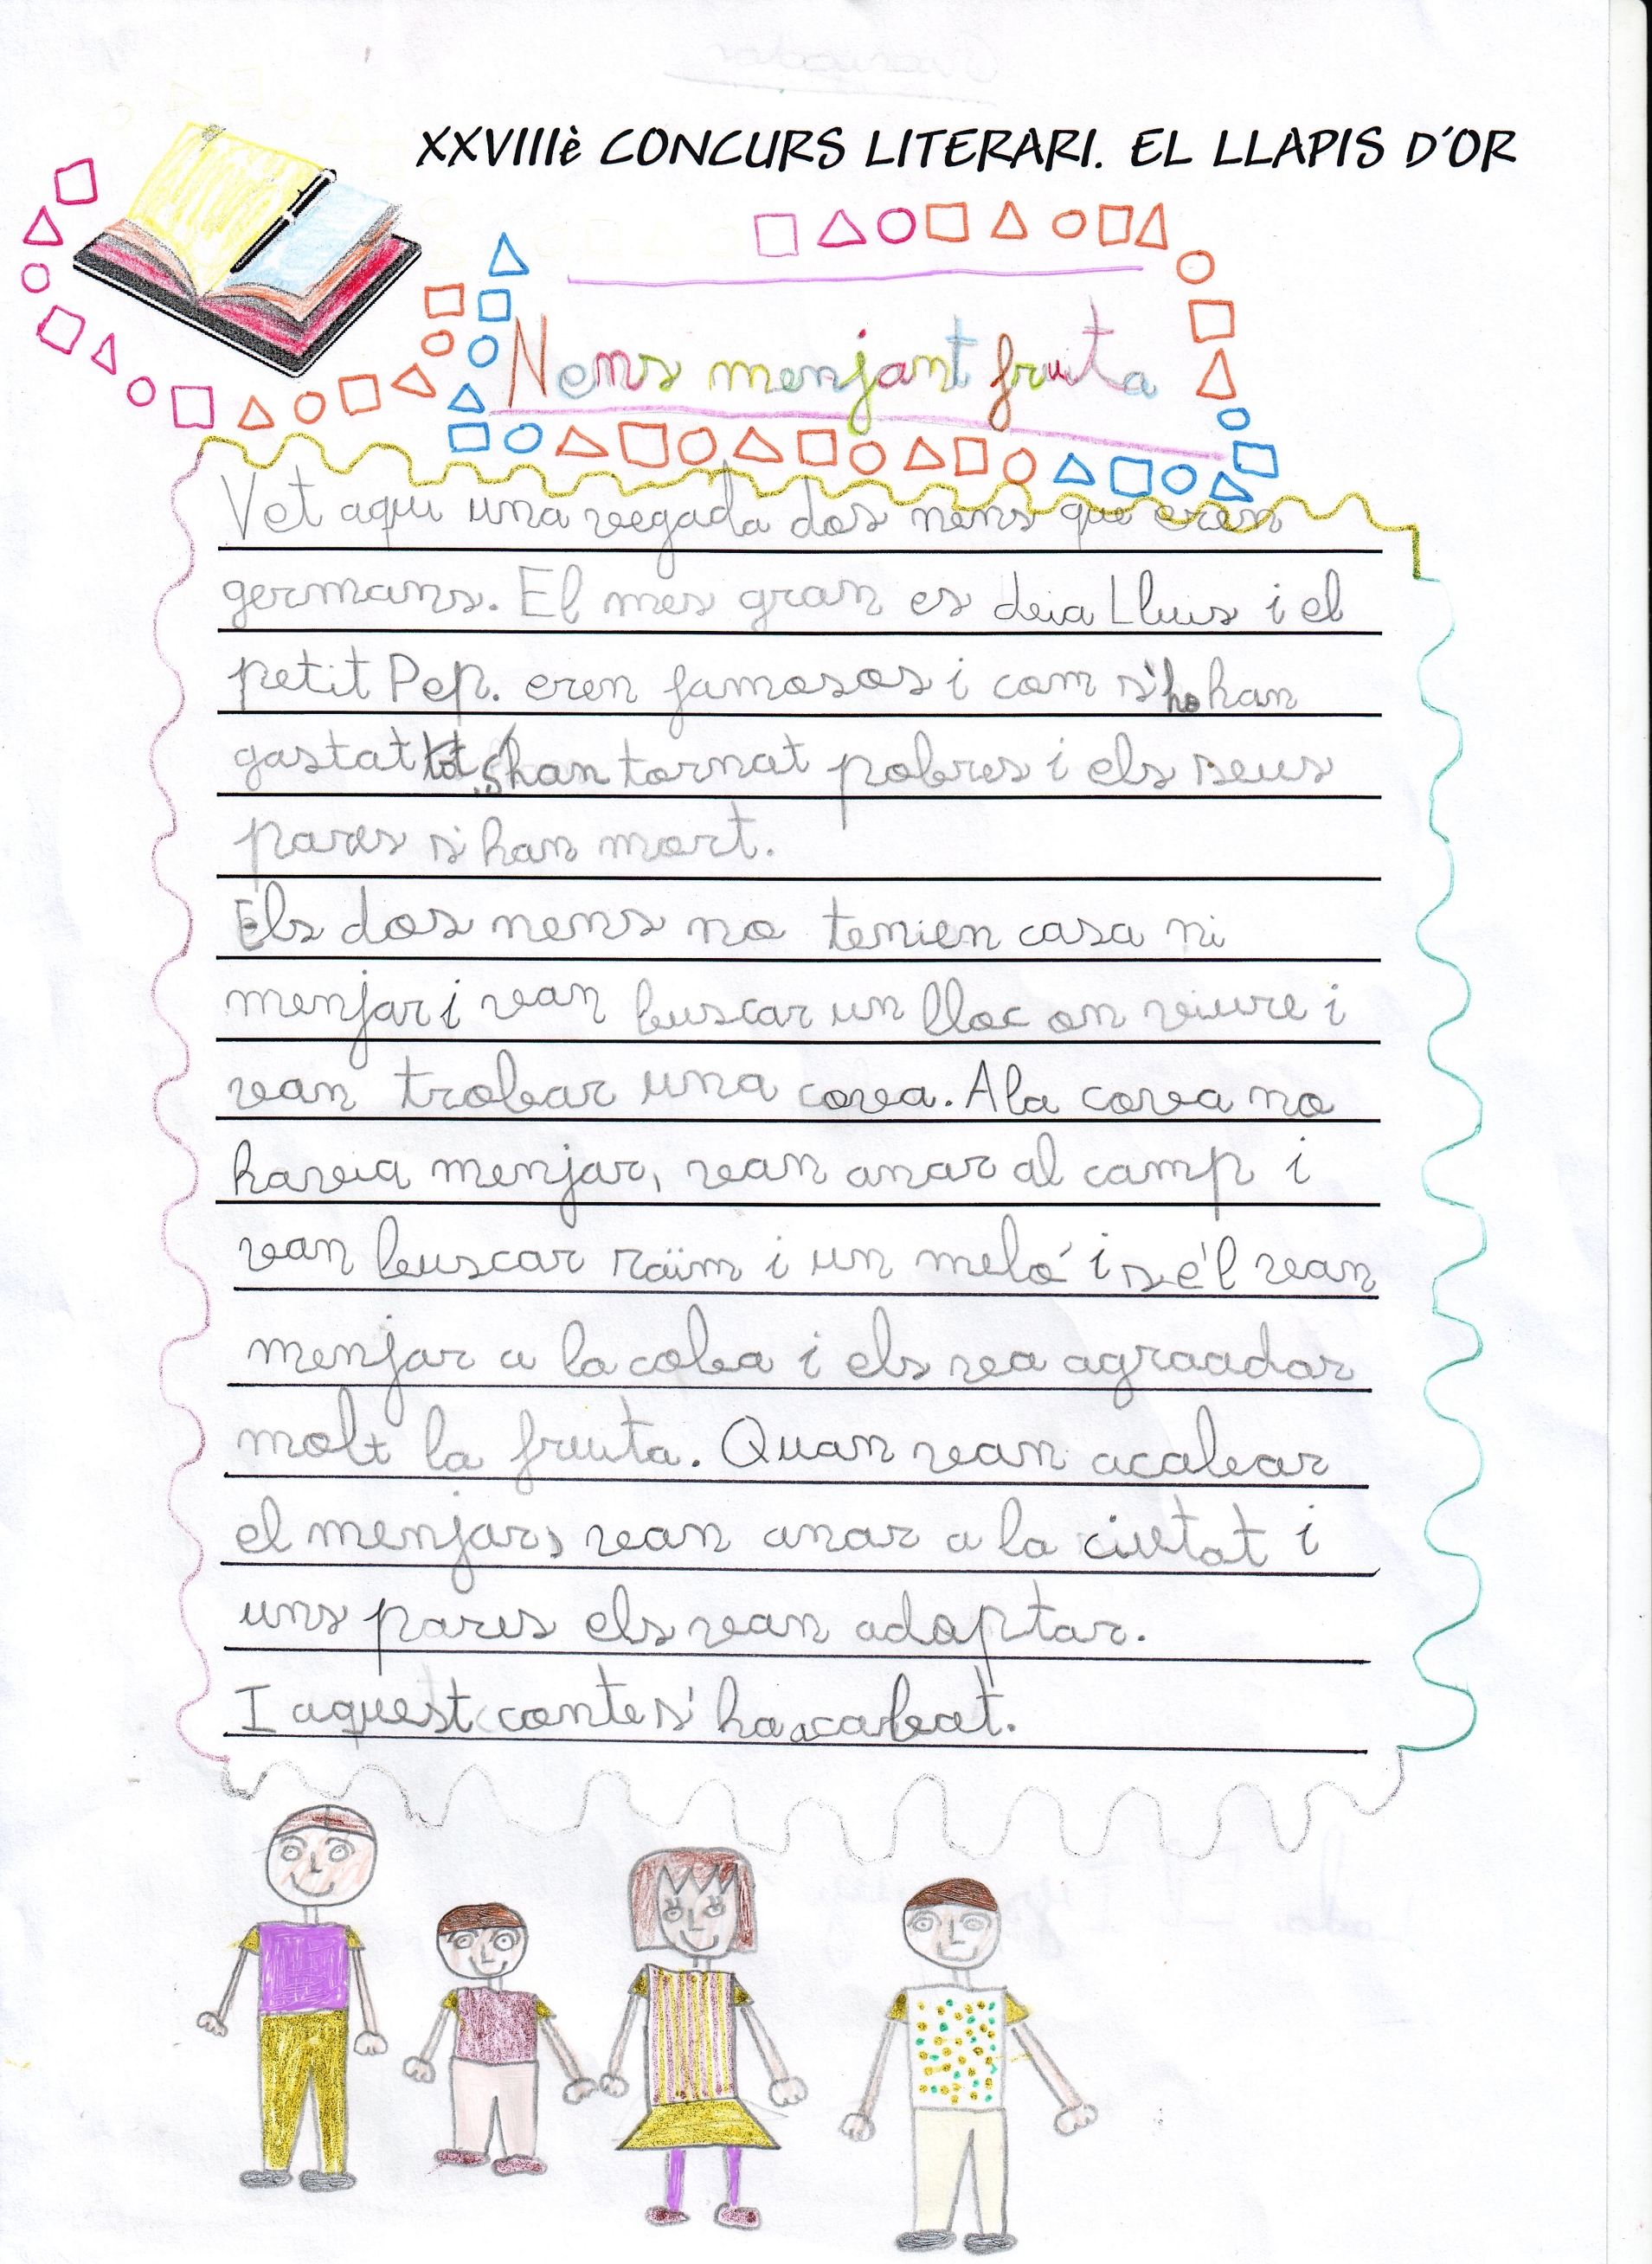 XXVIIIè CONCURS LITERARI. EL LLAPIS D'OR
Nens menjant fruita
Vet aqui una vegada dos nens que eren
germans. El mes gran es deia Lluis i el
petit Pep. eren famosos i com s'ho han
gastat tot, s'han tornat pobres i els seus
pares s'han mort.
Els dos nens no tenien casa ni
menjar i van buscar un lloc on viure i
van trobar una cova. A la cova no
havia menjar, van anar al camp i
van buscar raïm i un meló i se'l van
menjar a la coba i els va agraadar
molt la fruita. Quan van acabar
el menjar, van anar a la ciutat i
uns pares els van adoptar.
I aquest conte s'ha acabat.